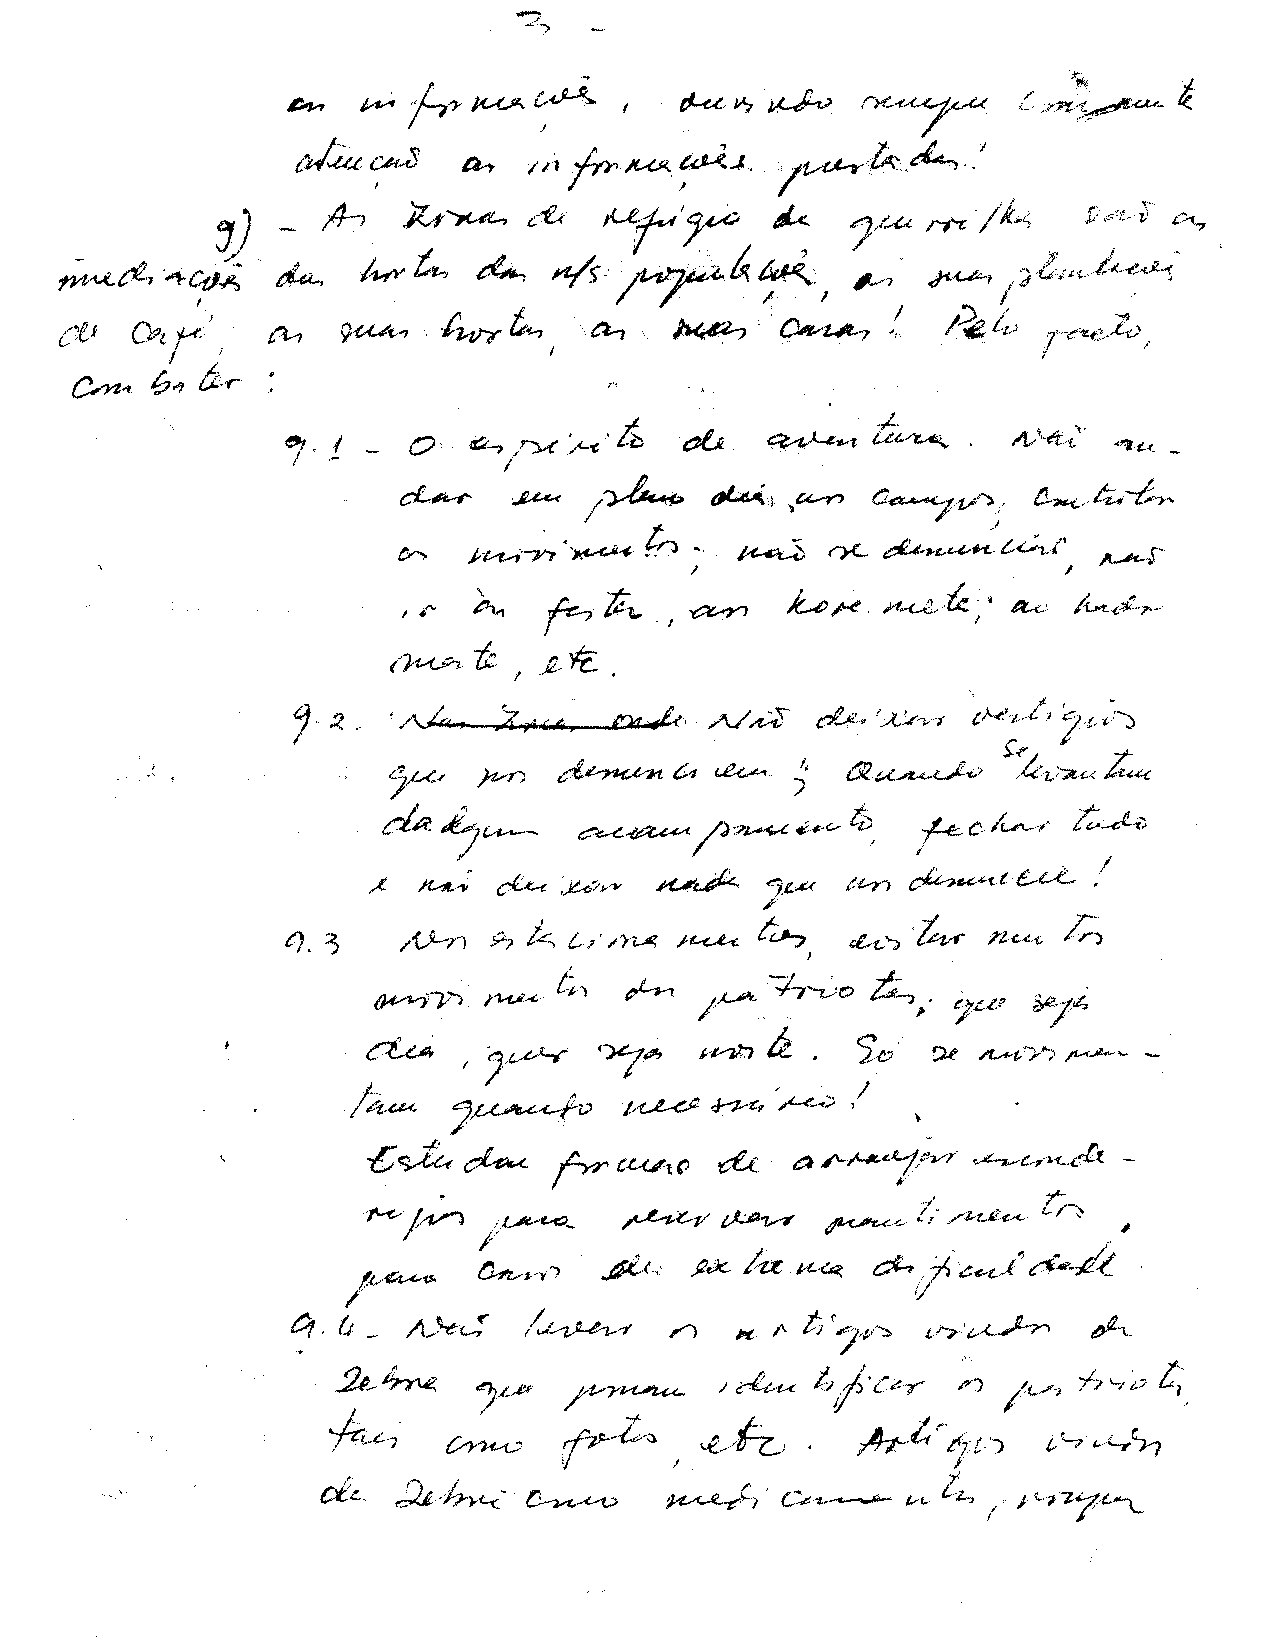 3 -
as informações, ouvindo sempre
atenção as informações prestadas!
g) - As Zonas de refúgio da guerrilha são as
imediações das hortas das n/s populações, as suas plantações
de café, as suas hortas, as suas casas! Pelo facto,
combater :
g.1 - O espírito de aventura. Não an-
dar em pleno dia, nos campos, controlar
os movimentos; não se denunciar, não
ir às festas, aos kore mete; ao
mate, etc.
g.2. Nas Zonas onde Não deixar vestígios
que nos denunciem! Quando se levantam
dalgum acampamento, fechar tudo
e não deixar nada que nos denuncie!
g.3 Nos estacionamentos, evitar muitos
movimentos dos patriotas; quer seja
dia, quer seja noite. Só se movimen-
tam quando necessário!
Estudar formas de arranjar esconde-
rijos para reservar mantimentos,
para casos de extrema dificuldade.
g.4 - Não levar os artigos vindos de
que possam identificar os patriotas,
tais como fotos, etc. Artigos vindos
de como medicamentos, roupas